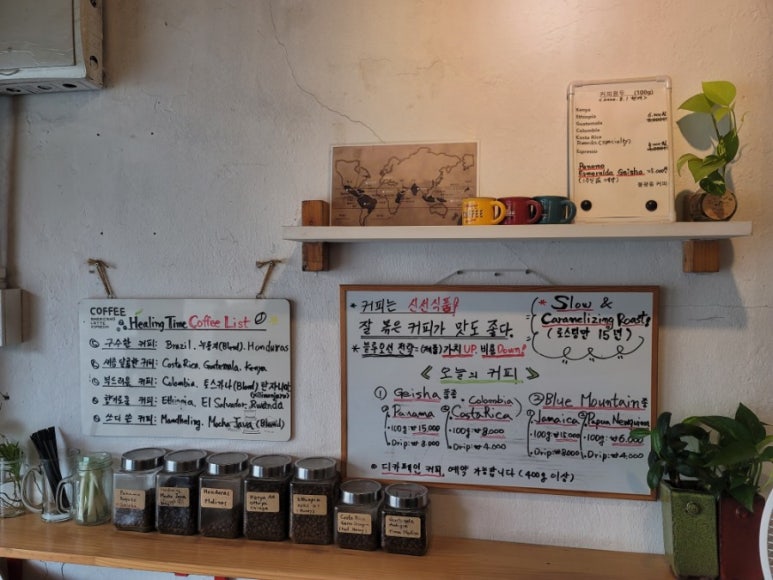 커피원두 (100g)
Kenya
Ethiopia
Guatemala
Colombia
Costa Rica
(specialty)
Espresso
Panama
Esmeralda Geisha
커피
COFFEE
COFFEE
AMERICANO
LATTE
Healing Time Coffee List
구수한 커피: Brazil. (Blend). Honduras
새콤달콤한 커피: Costa Rica. Guatemala. Kenya
부드러운 커피: Colombia. 토스카나(Blend) 탄자니아
(Kilimanjaro)
향기로운 커피: Ethiopia, El Salvador, Rwanda
쓰디 쓴 커피: Mandheling. Mocha Java. (Blend)
* 커피는 신선식품!
잘 볶은 커피가 맛도 좋다.
* 블루오션 전략=(제품)가치 UP. 비용 Down!
* Slow &
Caramelizing Roast!
(로스팅만 15년)
《 오늘의 커피 》
① Geisha 품종 • Colombia
Panama
·100g ₩15,000
·Drip: ₩8,000
Costa Rica
·100g: ₩8,000
·Drip: ₩4,000
② Blue Mountain 종
Jamaica
Drip: ₩8,000
Papua Newguinea
100g: ₩6,000
·Drip: ₩4,000
디카페인 커피 예약 가능합니다 (400g 이상)
Panama
Mocha Java
Honduras
Kenya AA
Ethiopia
Costa Rica